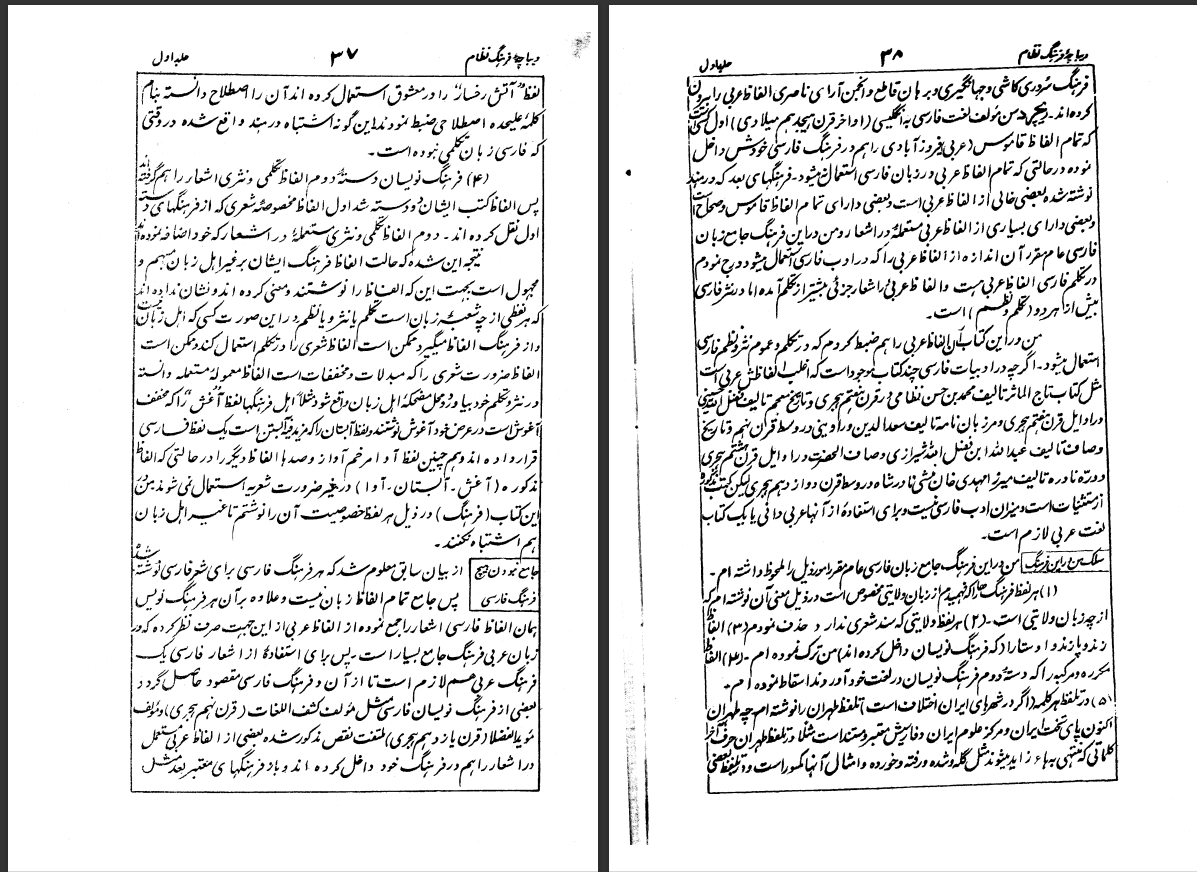 دیباچهٔ فرهنگ نظام
۳۷
جلد اول
لفظ "آتش رخسار" را در معشوق استعمال کرده اند آن را اصطلاح دانسته بنام
کلمهٔ علیحده اصطلاحی ضبط نمودند این گونه اشتباه در هند واقع شده در وقتی
که فارسی زبان تکلمی نبوده است۔
(۴) فرهنگ نویسان دستهٔ دوم الفاظ تکلمی و نثری اشعار را هم گرفته اند
پس الفاظ کتب ایشان دو دسته شد اول الفاظ مخصوصهٔ شعری که از فرهنگهای دستهٔ
اول نقل کرده اند۔ دوم الفاظ تکلمی و نثری مستعملهٔ در اشعار که خود اضافه نموده اند
نتیجه این شده که حالت الفاظ فرهنگ ایشان بر غیر اهل زبان مبهم و
مجهول است بجهت این که الفاظ را نوشتند و معنی کرده اند و نشان نداده اند
که هر لفظی از چه شعبهٔ زبان است تکلم یا نثر و یا نظم در این صورت کسی که اهل زبان نیست
و از فرهنگ الفاظ میگیرد ممکن است الفاظ شعری را در تکلم استعمال کند و ممکن است
الفاظ ضرورت شعری را که مبدلات و مخففات است الفاظ معمولهٔ مستعمله دانسته
در نثر و تکلم خود بیاورد و محل مضحکهٔ اهل زبان واقع شود مثلاً اهل فرهنگها لفظ "آغش" را که مخفف
آغوش است در عرض خود آغوش نوشتند و لفظ آبستان را که مزید فیه آبستن است یک لفظ فارسی
قرار داده اند و هم چنین لفظ آوا مرخم آواز و صدها الفاظ دیگر را در حالتی که الفاظ
مذکوره (آغش۔ آبستان۔ آوا) در غیر ضرورت شعریه استعمال نمی شوند من در
این کتاب (فرهنگ) در ذیل هر لفظ خصوصیت آن را نوشتم تا غیر اهل زبان
هم اشتباه نکنند۔
جامع نبودن هیچ
فرهنگ فارسی
از بیان سابق معلوم شد که هر فرهنگ فارسی برای شعر فارسی نوشته شده
پس جامع تمام الفاظ زبان نیست و علاوه بر آن هر فرهنگ نویس
همان الفاظ فارسی اشعار را جمع نموده از الفاظ عربی از این جهت صرف نظر کرده که در
زبان عربی فرهنگ جامع بسیار است۔ پس برای استفادهٔ از اشعار فارسی یک
فرهنگ عربی هم لازم است تا از آن و فرهنگ فارسی مقصود حاصل گردد
بعضی از فرهنگ نویسان فارسی مثل مؤلف کشف اللغات (قرن نهم هجری) و مؤلف
مؤید الفضلا (قرن یازدهم هجری) ملتفت نقص مذکور شده بعضی از الفاظ عربی مستعمل
در اشعار را هم در فرهنگ خود داخل کرده اند و باز فرهنگهای معتبر بعد مثل
دیباچهٔ فرهنگ نظام
۳۸
جلد اول
فرهنگ سروری کاشی و جهانگیری و برهان قاطع و انجمن آرای ناصری الفاظ عربی را بیرون
کرده اند۔ ریچردسن مؤلف لغت فارسی به انگلیسی (اواخر قرن هیجدهم میلادی) اول کسی است
که تمام الفاظ قاموس (عربی) فیروزآبادی را هم در فرهنگ فارسی خودش داخل
نموده در حالتی که تمام الفاظ عربی در زبان فارسی استعمال نمیشود۔ فرهنگهای بعد که در هند
نوشته شده بعضی خالی از الفاظ عربی است و بعضی دارای تمام الفاظ قاموس و صحاح است
و بعضی دارای بسیاری از الفاظ عربی مستعملهٔ در اشعار و من در این فرهنگ جامع زبان
فارسی عام مقرر آن اندازه از الفاظ عربی را که در ادب فارسی استعمال میشود درج نمودم
در تکلم فارسی الفاظ عربی هست و الفاظ عربی اشعار جزئی بیشتر از تکلم آمده اما در نثر فارسی
بیش از هر دو (تکلم و نظم) است۔
من در این کتاب آن الفاظ عربی را هم ضبط کردم که در تکلم و عموم نثر و نظم فارسی
استعمال میشود۔ اگرچه در ادبیات فارسی چند کتاب موجود است که اغلب الفاظش عربی است
مثل کتاب تاج المآثر تالیف محمد بن حسن نظامی در قرن هفتم هجری و تاریخ معجم تالیف فضل الله قزوینی
در اوایل قرن هفتم هجری و مرزبان نامه تالیف سعد الدین وراوینی در وسط قرن نهم و تاریخ
وصاف تالیف عبد الله ابن فضل الله شیرازی وصاف الحضرت در اوایل قرن هشتم هجری
و درّه نادره تالیف میرزا مهدی خان منشی نادرشاه در وسط قرن دوازدهم هجری لیکن کتب مذکوره
از مستثنیات است و میزان ادب فارسی نیست و برای استفادهٔ از آنها عربی دانی یا یک کتاب
لغت عربی لازم است۔
مسلک من در این فرهنگ
من در این فرهنگ جامع زبان فارسی عام مقرر امور ذیل را ملحوظ داشته ام۔
(۱) هر لفظ فرهنگها را که فهمیدم از زبان ولایتی مخصوص است در ذیل معنی آن نوشته ام که
از چه زبان ولایتی است۔ (۲) هر لفظ ولایتی که سند شعری ندارد حذف نمودم (۳) الفاظ
زند و پازند و اوستا را که فرهنگ نویسان داخل کرده اند من ترک نموده ام۔ (۴) الفاظ
مکرره و مرکبه را که دستهٔ دوم فرهنگ نویسان در لغت خود آوردند اسقاط نموده ام۔
(۵) در تلفظ هر کلمه (اگر در شهرهای ایران اختلاف است) تلفظ طهران را نوشته ام چه طهران
اکنون پای تخت ایران و مرکز علوم ایران و فارسیش معتبر و مستند است مثلاً در تلفظ طهران حرف آخر
کلماتی که منتهی به هاء زاید میشوند مثل گله و شده و رفته و خورده و امثال آنها مکسور است و در تلفظ بعضی